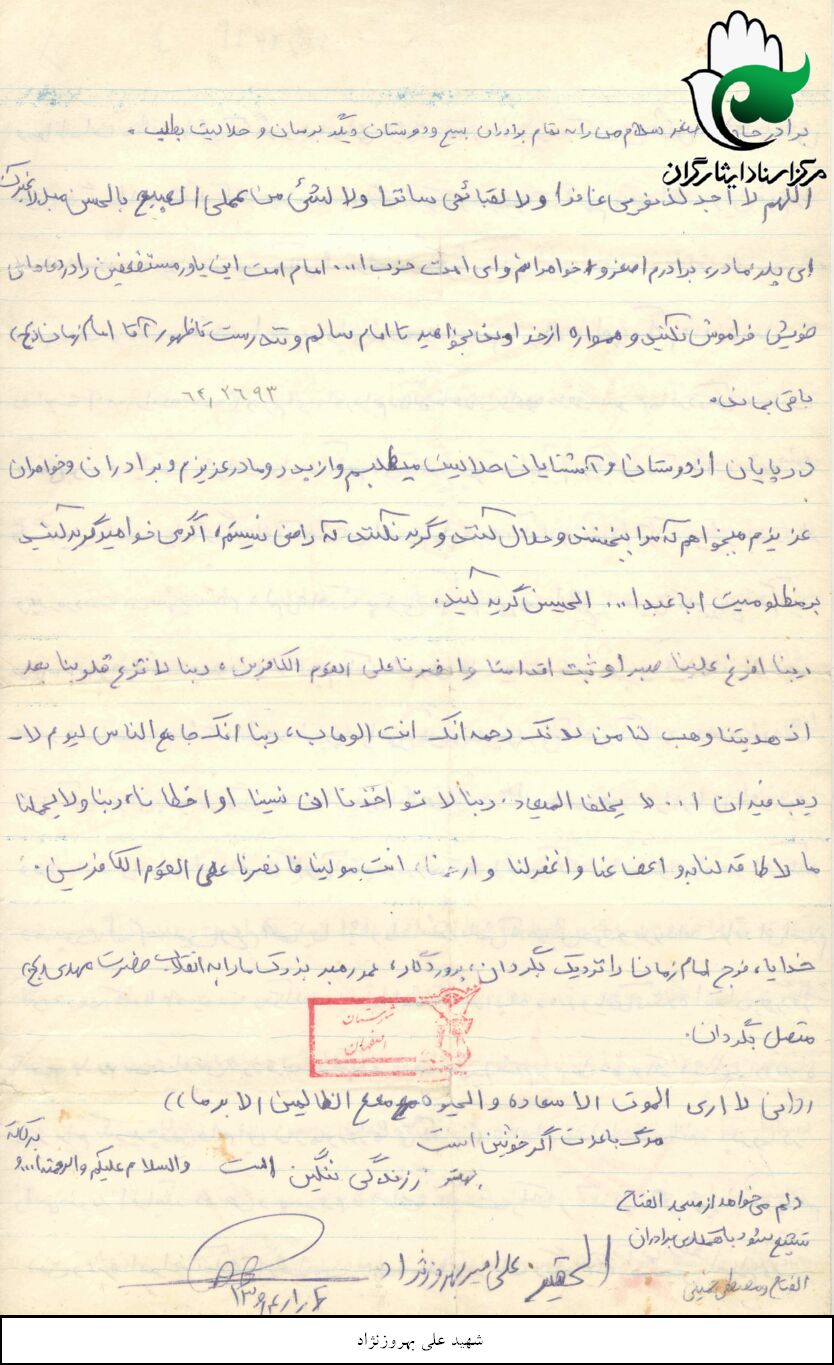 مرکز اسناد ایثارگران
برادر اصغر سلام من را به تمام برادران بسیج و دوستان دیگر برسان و حلالیت بطلب.
اللهم لا اجد لذنوبی غافرا و لا لقبائحی ساترا و لا لشئ من عملی القبیح بالحسن مبدلا غیرک
ای پدر، مادر، برادرم اصغر و خواهرانم و ای امت حزب ا... امام امت این یاور مستضعفین را در دعاهای
خویش فراموش نکنید و همواره از خداوند بخواهید تا امام سالم و تندرست تا ظهور آقا امام زمان (عج)
باقی بماند.
در پایان از دوستان و آشنایان حلالیت میطلبم و از پدر و مادر عزیزم و برادران و خواهران
عزیزم میخواهم که مرا ببخشند و حلال کنند و گریه نکنند که راضی نیستم، اگر می خواهید گریه کنید
بر مظلومیت ابا عبدا... الحسین گریه کنید.
ربنا افرغ علینا صبرا و ثبت اقدامنا و انصرنا علی القوم الکافرین، ربنا لا تزغ قلوبنا بعد
اذ هدیتنا وهب لنا من لدنک رحمه انک انت الوهاب، ربنا انک جامع الناس لیوم لا
ریب فیه ان ا... لا یخلف المیعاد. ربنا لا تواخذنا ان نسینا او اخطانا، ربنا و لا یحملنا
ما لا طاقه لنا به و اعف عنا و اغفرلنا و ارحمنا، انت مولینا فانصرنا علی القوم الکافرین.
خدایا، فرج امام زمان را نزدیک بگردان، پروردگار، عمر رهبر بزرگ ما را به انقلاب حضرت مهدی (عج)
متصل بگردان.
شهرستان
اصفهان
انی لا اری الموت الا سعاده و الحیوه مع الظالمین الا برما))
مرگ با عزت اگر خونین است
بهتر ز زندگی ننگین است
والسلام علیکم و الرحمة ا... و برکاته
دلم می خواهد از مسجد الفتاح
تشییع شود با همکاری برادران
الفتاح و مصطفی خمینی
الحقیر علی امیر بهروزنژاد
شهید علی بهروزنژاد